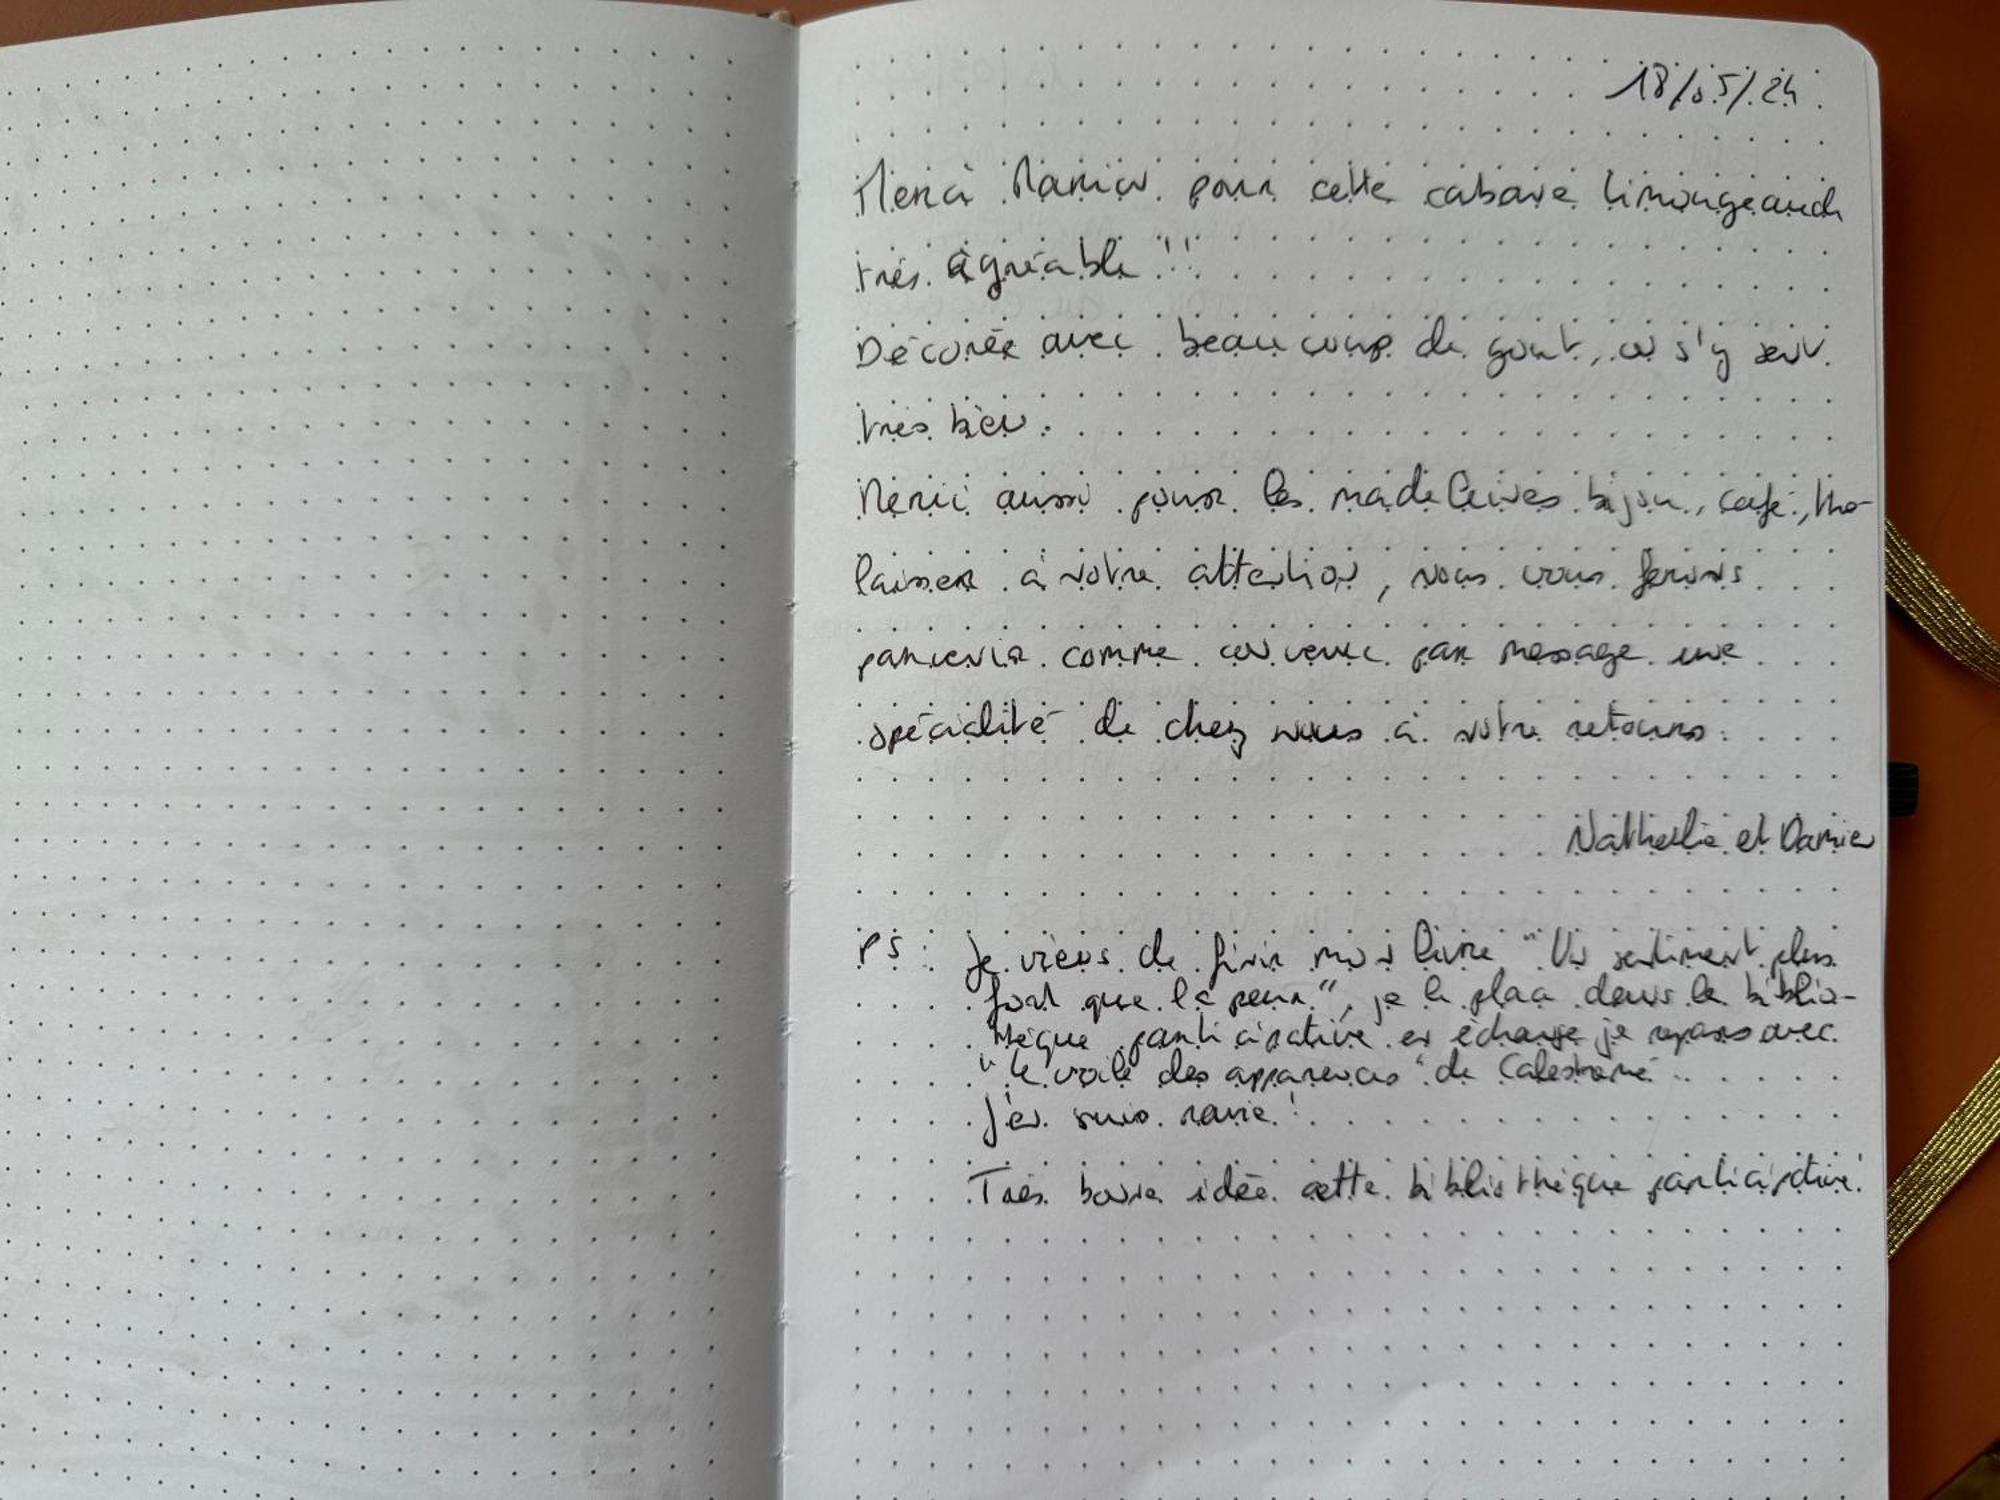 18/05/24
Merci Marion pour cette cabane limougeaude
très agréable !!
Décorée avec beaucoup de gout, on s'y sent
très bien.
Merci aussi pour les madeleines bijou, café, thé
laisser à votre attention, nous vous ferons
parvenir comme convenu par message une
spécialité de chez nous à notre retours.
Nathalie et Damien
PS : Je viens de finir mon livre "Un sentiment plus
fort que la peur", je le place dans la biblio-
thèque participative en échange je repars avec
"le voile des apparences" de
J'en suis ravie !
Très bonne idée cette bibliothèque participative!